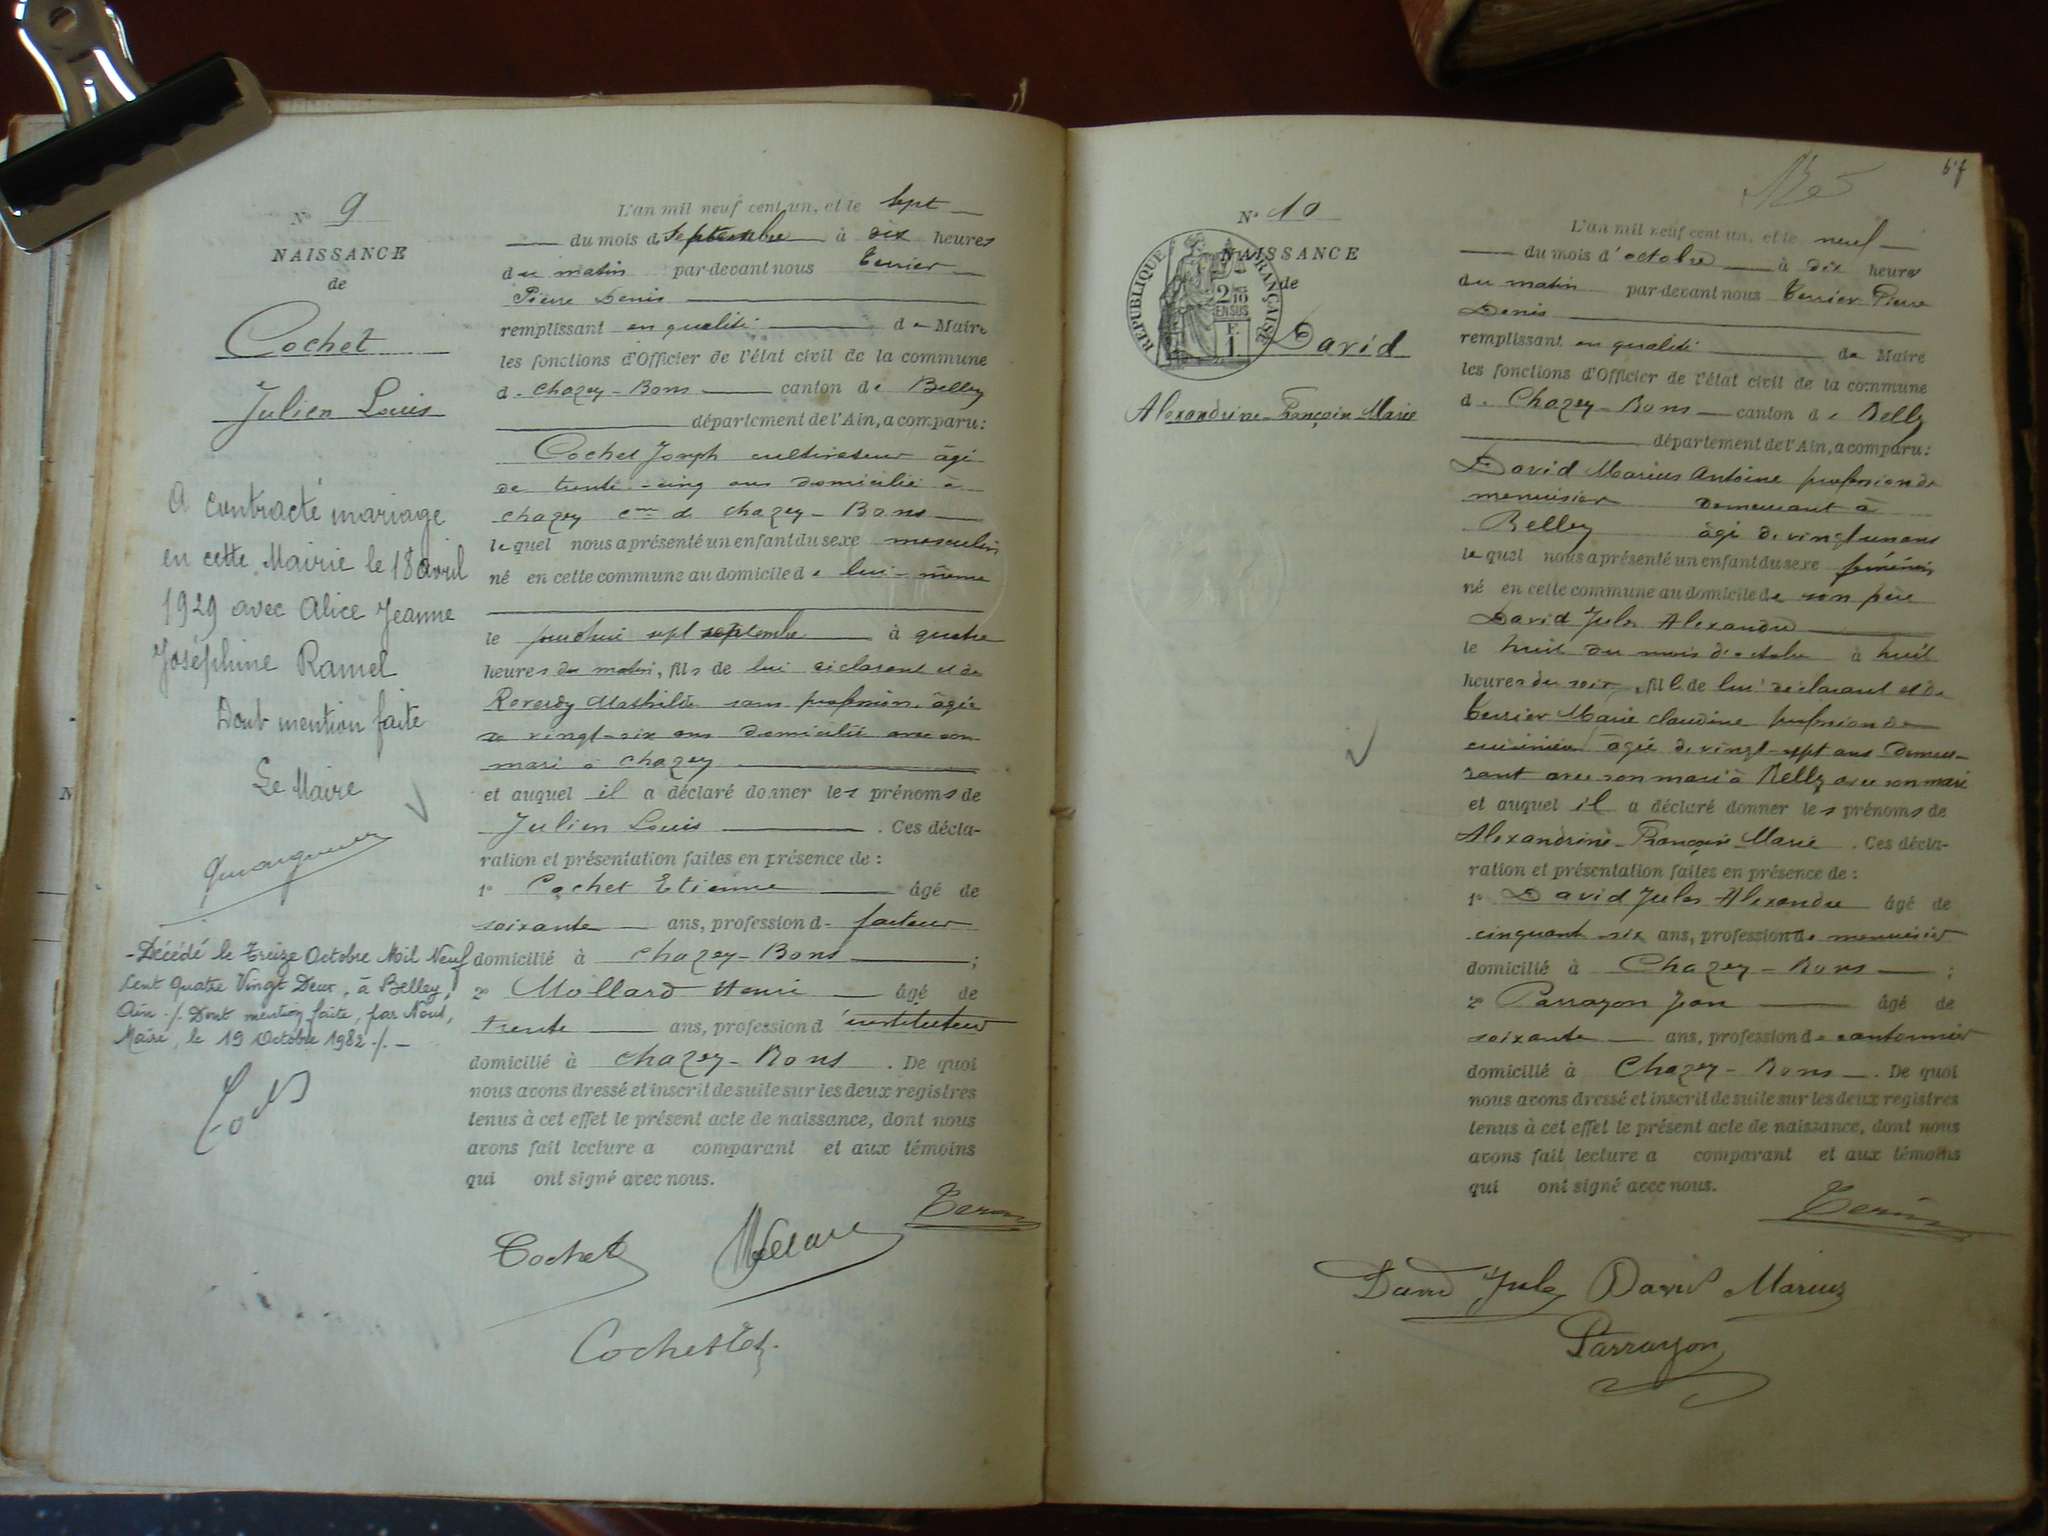 N° 9
NAISSANCE
de
Cochet
Julien Louis
A contracté mariage
en cette Mairie le 18 avril
1929 avec Alice Jeanne
Joséphine Ramel
Dont mention faite
Le Maire
- Décédé le Treize Octobre Mil Neuf
Cent Quatre Vingt Deux, à Belley,
Ain ./. Dont mention faite, par Nous,
Maire, le 19 Octobre 1982 ./. -
L'an mil neuf cent un, et le sept
du mois de septembre à dix heures
du matin par-devant nous Terrier
Pierre Denis
remplissant en qualité de Maire
les fonctions d'Officier de l'état civil de la commune
de Chazey-Bons canton de Belley
département de l'Ain, a comparu :
Cochet Joseph cultivateur âgé
de trente-cinq ans domicilié à
Chazey cne de Chazey-Bons
lequel nous a présenté un enfant du sexe masculin
né en cette commune au domicile de lui-même
le sept septembre à quatre
heures du matin, fils de lui déclarant et de
Reverdy Mathilde sans profession âgée
de vingt-six ans domiciliée avec son
mari à Chazey
et auquel il a déclaré donner les prénoms de
Julien Louis . Ces décla-
ration et présentation faites en présence de :
1° Cochet Etienne âgé de
soixante ans, profession de facteur
domicilié à Chazey-Bons ;
2° Mollard Henri âgé de
trente ans, profession d'instituteur
domicilié à Chazey-Bons . De quoi
nous avons dressé et inscrit de suite sur les deux registres
tenus à cet effet le présent acte de naissance, dont nous
avons fait lecture a comparant et aux témoins
qui ont signé avec nous.
Terrier
Cochet Mollard
Cochet Et.
57
N° 10
NAISSANCE
de
RÉPUBLIQUE FRANÇAISE
2/10 EN SUS
F. 1
David
Alexandrine-Françoise-Marie
L'an mil neuf cent un, et le neuf
du mois d'octobre à dix heures
du matin par-devant nous Terrier Pierre
Denis
remplissant en qualité de Maire
les fonctions d'Officier de l'état civil de la commune
de Chazey-Bons canton de Belley
département de l'Ain, a comparu :
David Marius Antoine profession de
menuisier demeurant à
Belley âgé de vingt un ans
lequel nous a présenté un enfant du sexe féminin
né en cette commune au domicile de son père
David Jules Alexandre
le huit du mois d'octobre à huit
heures du soir, fille de lui déclarant et de
Terrier Marie Claudine profession de
cuisinière âgée de vingt-sept ans demeu-
rant avec son mari à Belley avec son mari
et auquel il a déclaré donner les prénoms de
Alexandrine-Françoise-Marie . Ces décla-
ration et présentation faites en présence de :
1° David Jules Alexandre âgé de
cinquante six ans, profession de menuisier
domicilié à Chazey-Bons ;
2° Parrayon Jean âgé de
soixante ans, profession de cantonnier
domicilié à Chazey-Bons . De quoi
nous avons dressé et inscrit de suite sur les deux registres
tenus à cet effet le présent acte de naissance, dont nous
avons fait lecture a comparant et aux témoins
qui ont signé avec nous.
Terrier
David Jules David Marius
Parrayon